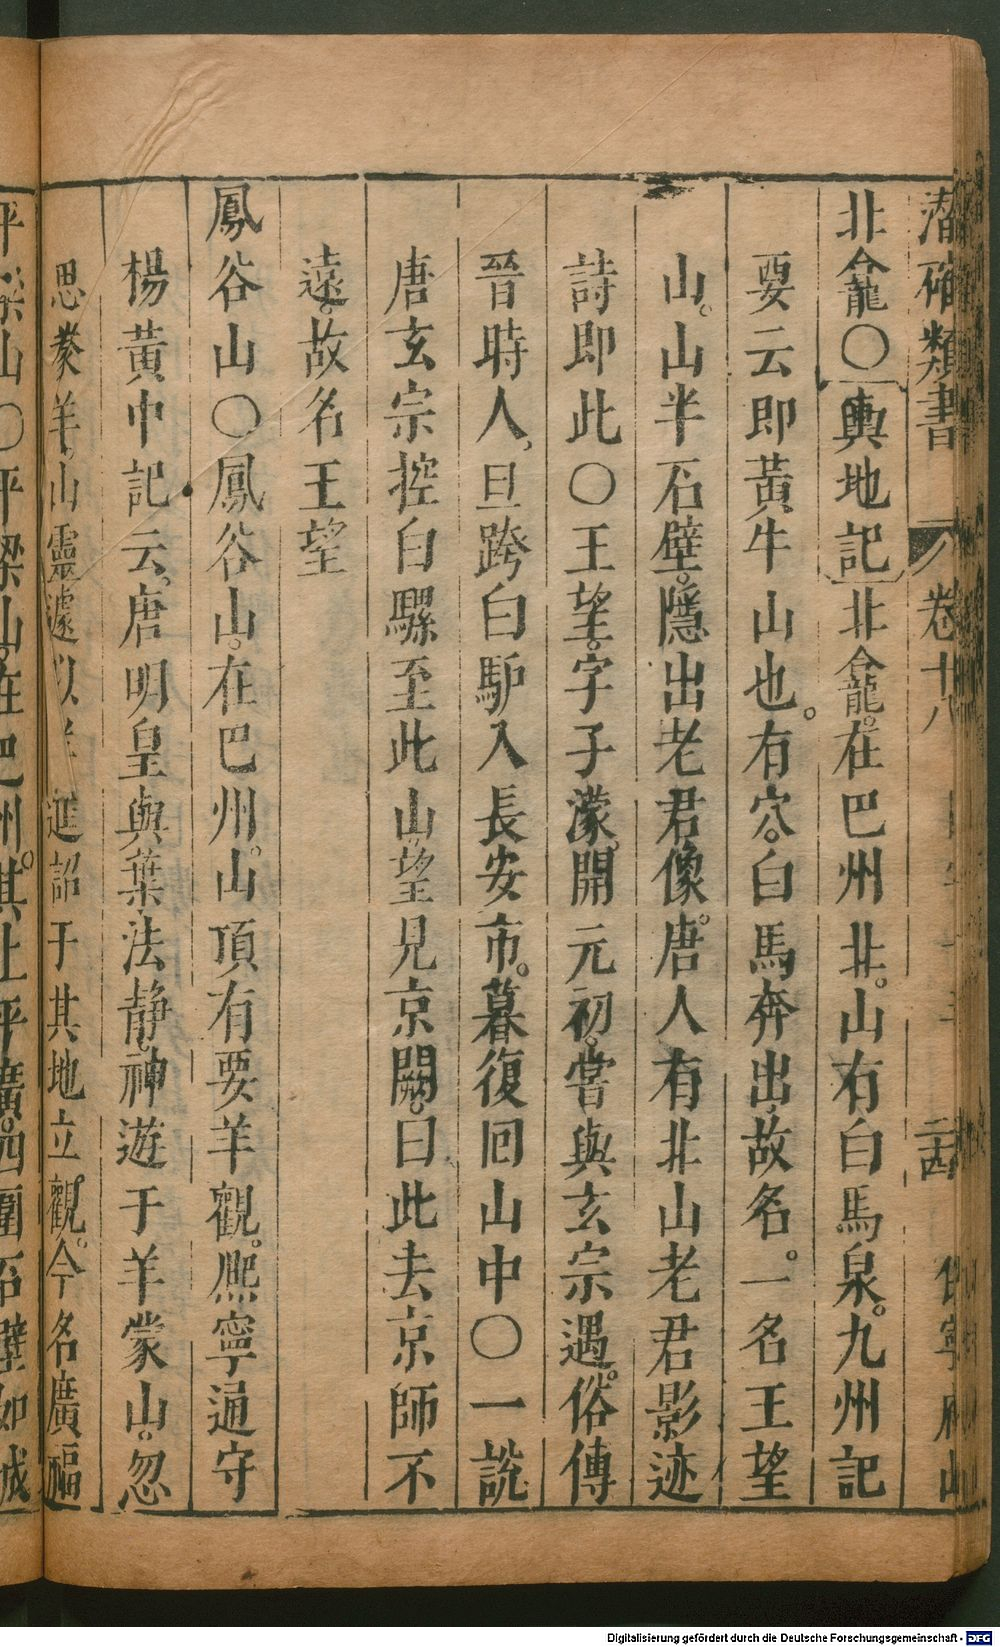 潛確類書 卷十八 二四
北龕〇輿地記北龕。在巴州北。山有白馬泉。九州記
要云即黃牛山也。有穴。白馬奔出。故名。一名王望
山。山半石壁。隱出老君像。唐人有北山老君影迹
詩即此〇王望。字子濛。開元初。嘗與玄宗遇。俗傳
晉時人。旦跨白馿入長安市。暮復囘山中〇一說
唐玄宗控白騾至此山。望見京闕。曰此去京師不
遠。故名王望
鳳谷山〇鳳谷山。在巴州。山頂有要羊觀。熈寧通守
楊黃中記云。唐明皇與葉法静。神遊于羊蒙山。忽
思羙羊。山靈遽以羊進詔于其地立觀。今名廣福
平梁山〇平梁山。在巴州。其上平廣。四圍石壁如城
Digitalisierung gefördert durch die Deutsche Forschungsgemeinschaft - DFG